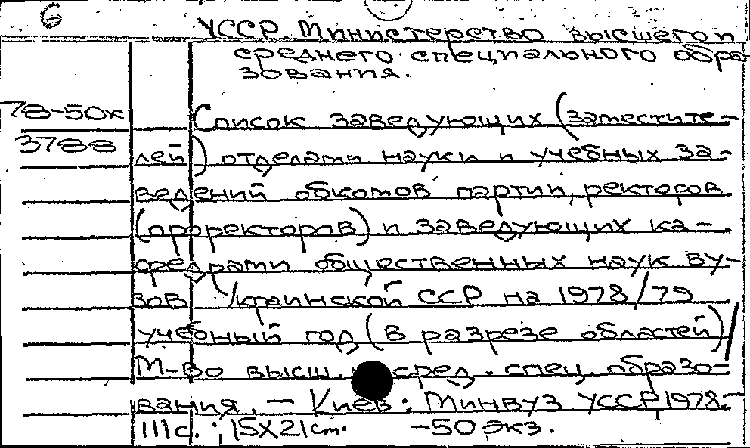 6
УССР. Министерство высшего и
среднего специального обра-
зования.
78-50к
Список заведующих (заместите-
3788
лей) отделами науки и учебных за-
ведений обкомов партии, ректоров
(проректоров) и заведующих ка-
федрами общественных наук ву-
зов Украинской ССР на 1978/79
учебный год (в разрезе областей)/
М-во высш. сред. спец. образо-
вания. — Киев: Минвуз УССР, 1978.-
111с.; 15Х21см. -50 экз.